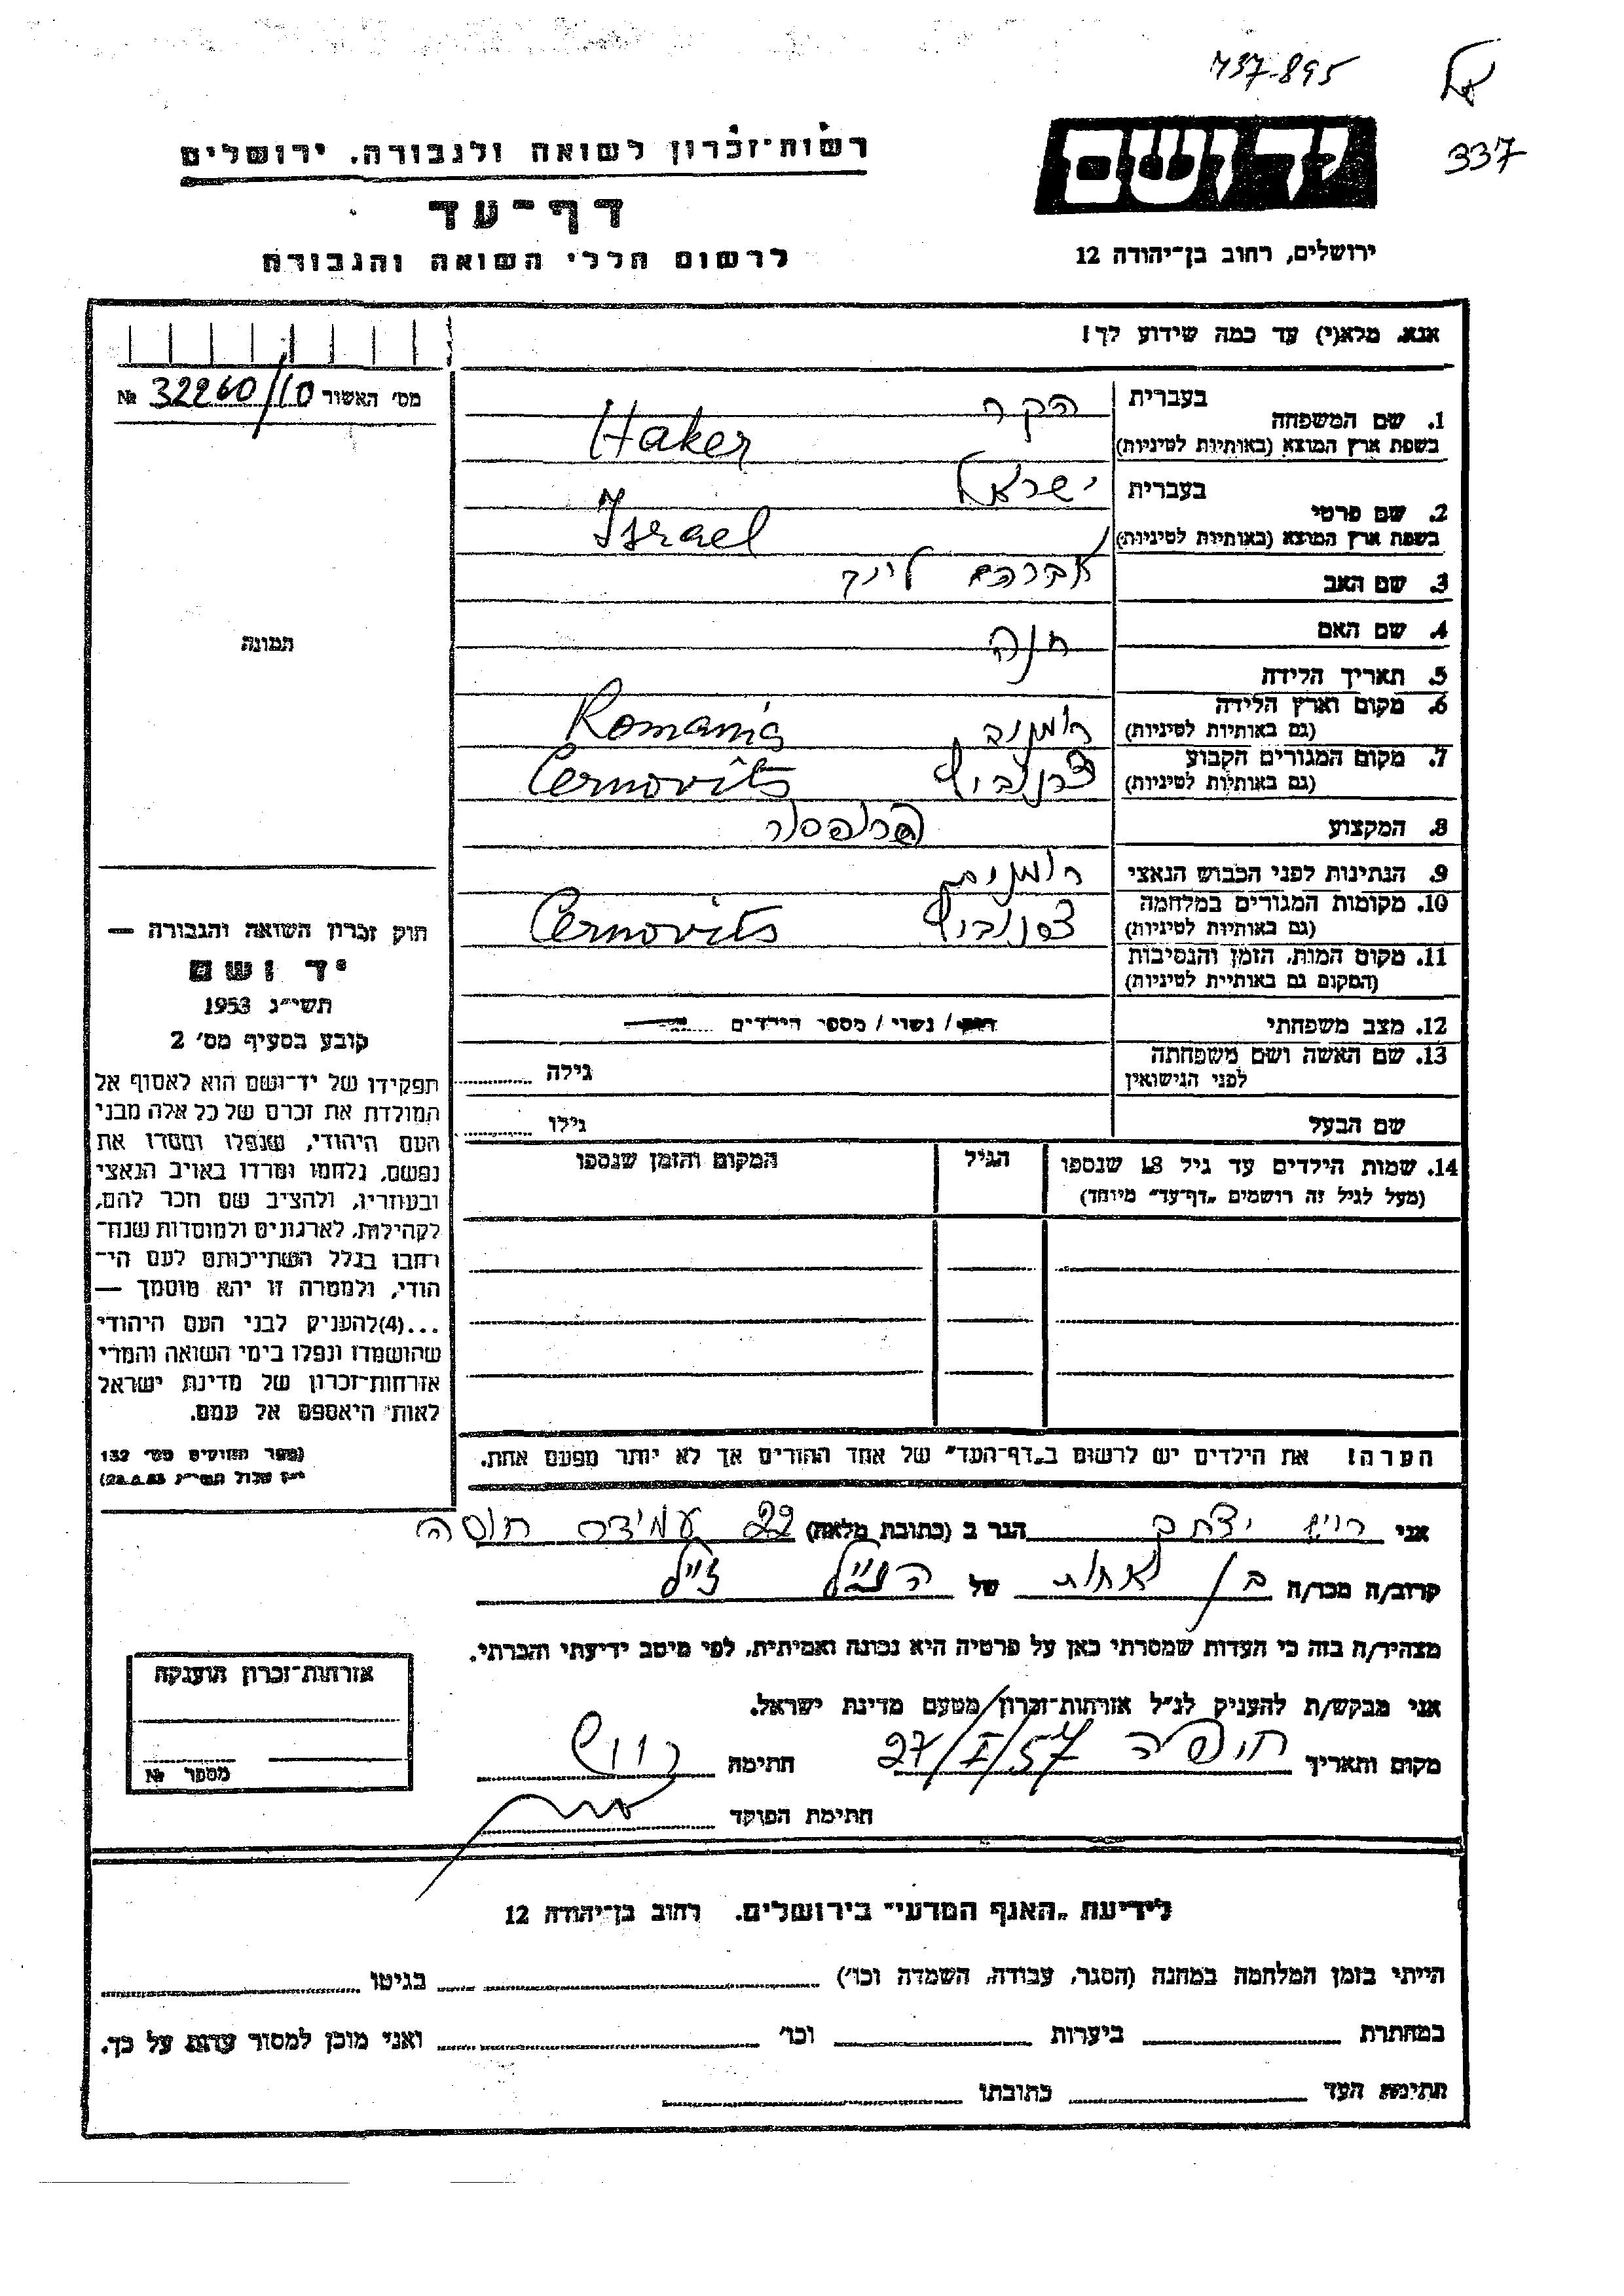 737-895
337
יד ושם
רשות־זכרון לשואה ולגבורה. ירושלים
דף־עד
לרשום חללי השואה והגבורה
ירושלים, רחוב בן־יהודה 12
אנא. מלא(י) עד כמה שידוע לך!
מס׳ האשור № 32260/10
1. שם המשפחה בעברית הקר
בשפת ארץ המוצא (באותיות לטיניות) Haker
2. שם פרטי בעברית ישראל
בשפת ארץ המוצא (באותיות לטיניות) Israel
3. שם האב אברהם
4. שם האם חנה
5. תאריך הלידה
6. מקום וארץ הלידה רומניה Romania
(גם באותיות לטיניות)
7. מקום המגורים הקבוע צרנוביץ Cernovits
(גם באותיות לטיניות)
8. המקצוע פרופסור
9. הנתינות לפני הכבוש הנאצי רומנית
10. מקומות המגורים במלחמה צרנוביץ Cernovits
(גם באותיות לטיניות)
11. מקום המות, הזמן והנסיבות
(המקום גם באותיות לטיניות)
12. מצב משפחתי רווק / נשוי / מספר הילדים
13. שם האשה ושם משפחתה גילה
לפני הנישואין
שם הבעל גילו
14. שמות הילדים עד גיל 18 שנספו הגיל המקום והזמן שנספו
(מעל לגיל זה רושמים „דף־עד״ מיוחד)
הערה! את הילדים יש לרשום ב„דף־העד״ של אחד ההורים אך לא יותר מפעם אחת.
תמונה
חוק זכרון השואה והגבורה —
יד ושם
תשי״ג 1953
קובע בסעיף מס׳ 2
תפקידו של יד־ושם הוא לאסוף אל
המולדת את זכרם של כל אלה מבני
העם היהודי, שנפלו ומסרו את
נפשם, נלחמו ומרדו באויב הנאצי
ובעוזריו, ולהציב שם וזכר להם,
לקהילות, לארגונים ולמוסדות שנח־
רבו בגלל השתייכותם לעם הי־
הודי, ולמטרה זו יהא מוסמך —
...(4) להעניק לבני העם היהודי
שהושמדו ונפלו בימי השואה והמרי
אזרחות־זכרון של מדינת ישראל
לאות היאספם אל עמם.
(ספר החוקים מס׳ 132
אני יצחק הגר ב (כתובת מלאה) 22 עמידר חיפה
קרוב/ה מכר/ה בן אחות של הנ״ל ז״ל
מצהיר/ה בזה כי העדות שמסרתי כאן על פרטיה היא נכונה ואמיתית, לפי מיטב ידיעתי והכרתי.
אני מבקש/ת להעניק לנ״ל אזרחות־זכרון מטעם מדינת ישראל.
מקום ותאריך חיפה 27/I/57 חתימה
חתימת הפוקד
אזרחות־זכרון הוענקה
מספר №
לידיעת „האגף המדעי״ בירושלים. רחוב בן־יהודה 12
הייתי בזמן המלחמה במחנה (הסגר, עבודה, השמדה וכו׳) בגיטו
במחתרת ביערות וכו׳ ואני מוכן למסור עדות על כך.
חתימת העד כתובתו